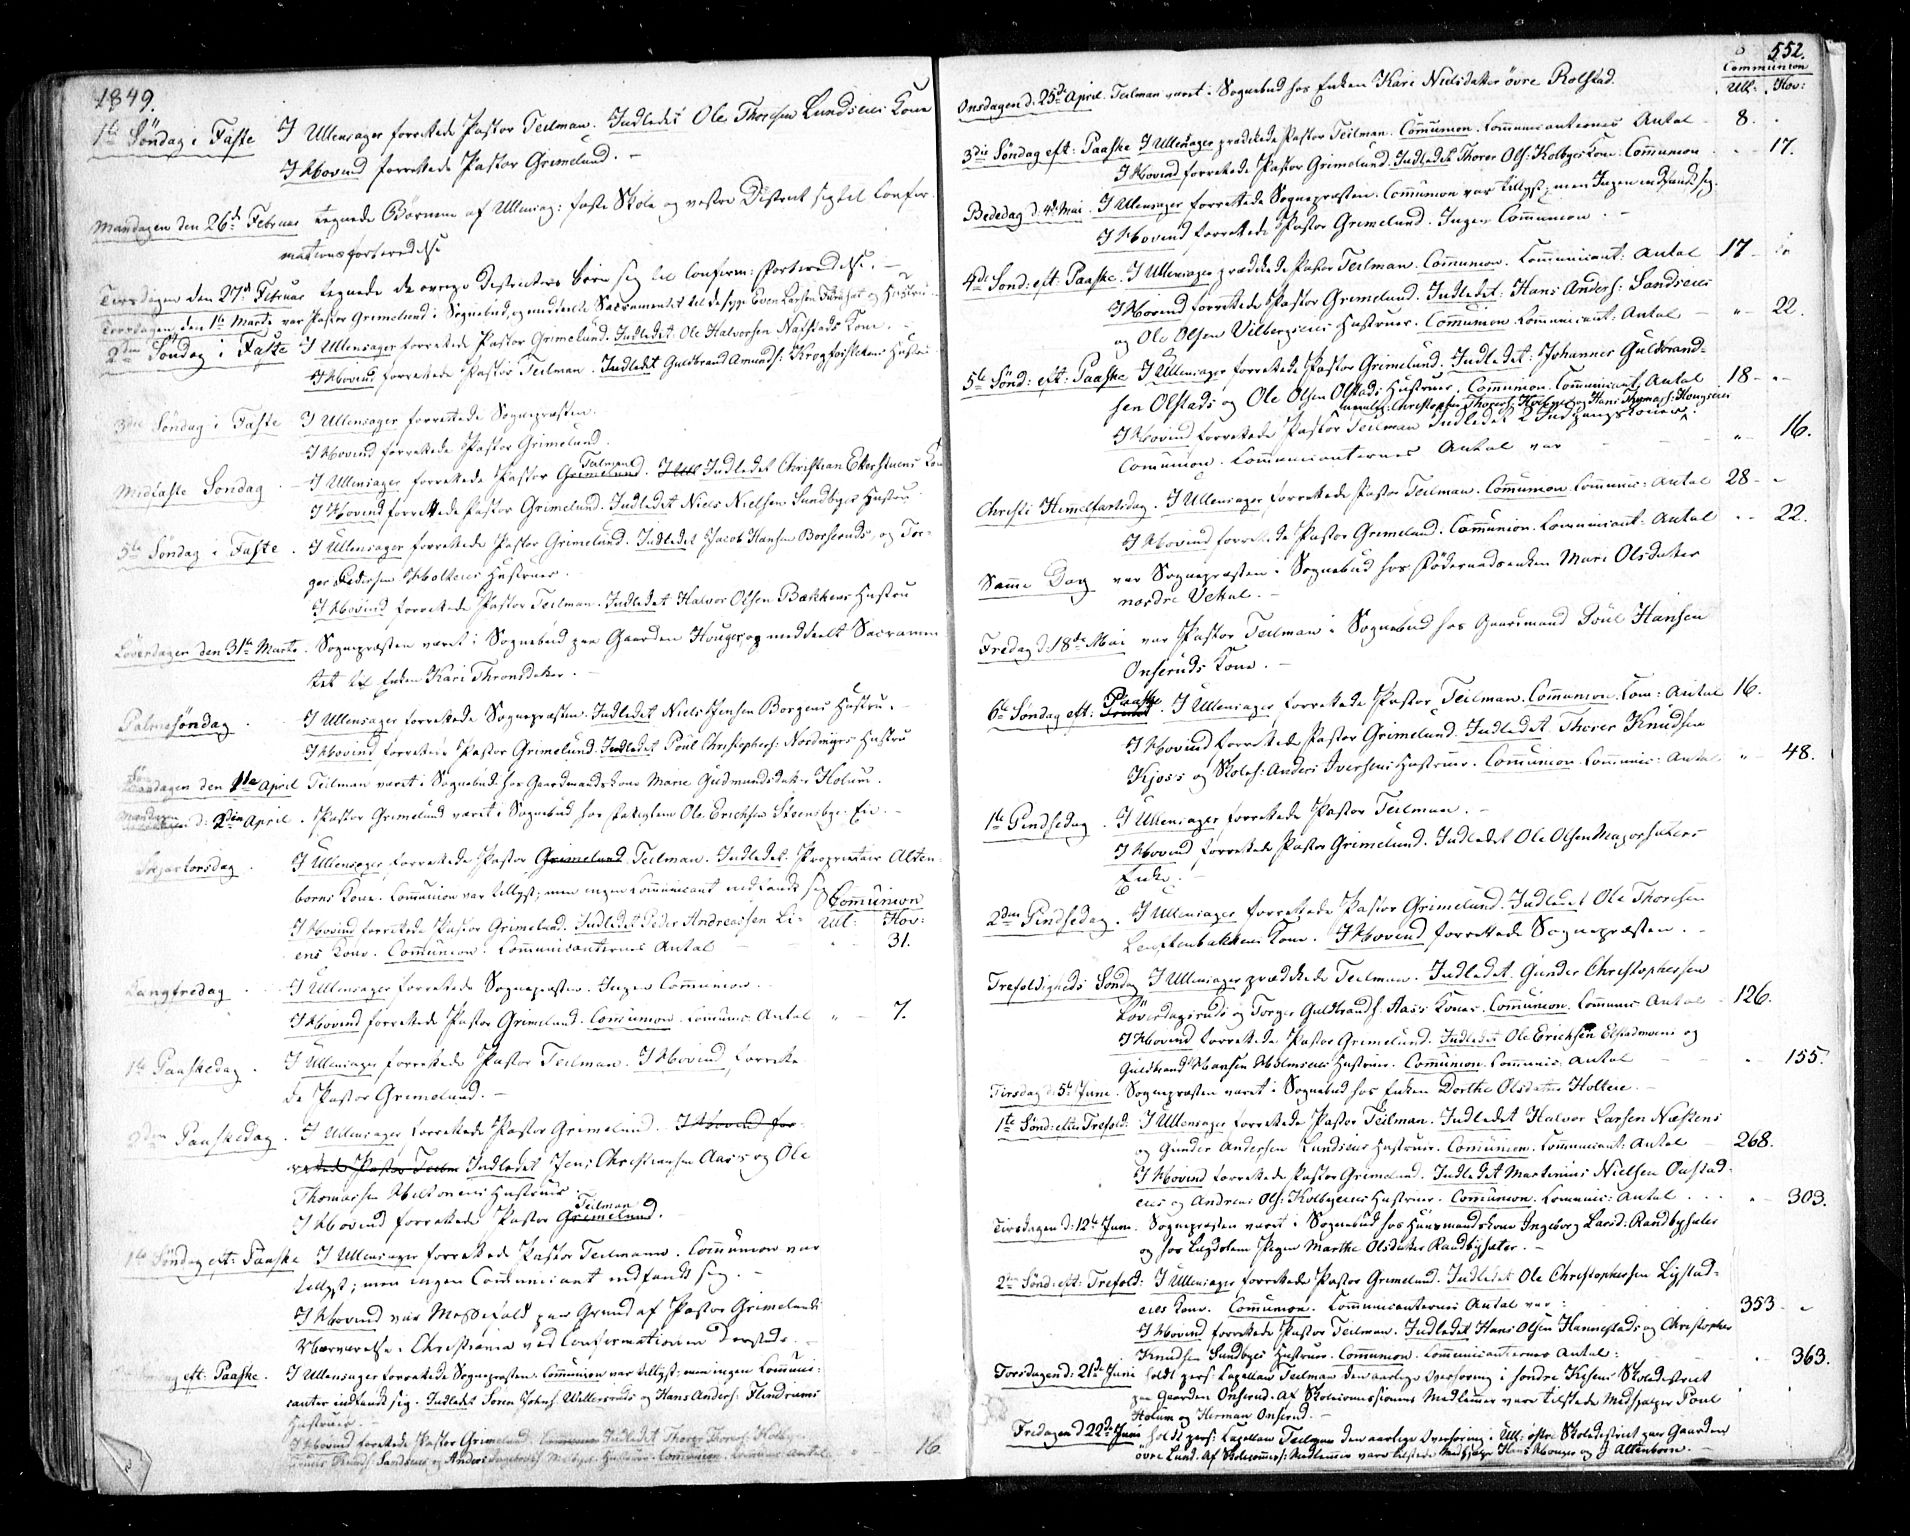 1849.
1ste Söndag i Faste I Ullensager forrettede Pastor Teilman. Indledet Ole Thoresen Lundseies Kone
I Hovind forrettede Pastor Grimelund. –
Mandagen den 26de Februar tegnede Börnene af Ullensag: faste Skole og vestre District sig til Confir-
mationsforberedelse
Tirsdagen den 27de Februar tegnede de övrige Districters Börn sig til Confirm: forberedelse. –
Torsdagen den 1ste Marts var Pastor Grimelund i Sognebud, og meddeelte Sacramentet til de syge Even Larsen og Hustru
2den Söndag i Faste I Ullensager forrettede Pastor Grimelund. Indledet Ole Halvorsen Nalstads Kone. –
I Hovind forrettede Pastor Teilman. Indledet Guldbrand Amunds: Krogfoslökens Hustru
3die Söndag i Faste I Ullensager forrettede Sognepræsten.
I Hovind forrettede Pastor Grimelund.
Midfaste Söndag . I Ullensager forrettede Pastor Grimelund Teilman. I Ull Indledet Christian Ekerstuens Kone
I Hovind forrettede Pastor Grimelund. Indledet Niels Nielsen Sundbyes Hustru
5te Söndag i Faste . I Ullensager forrettede Pastor Grimelund. Indledet Jacob Hansen Borseruds, og Tor-
ger Pedersen Holteies Hustruer.
I Hovind forrettede Pastor Teilman. Indledet Halvor Olsen Bækkens Hustru
Löverdagen den 31te Marts . Sognepræsten været i Sognebud paa Gaarden Houger, og meddeelt Sacramen
tet til Enken Kari Thronsdatter. –
Palmesöndag . I Ullensager forrettede Sognepræsten. Indledet Niels Jensen Borgens Hustru. –
I Hovind forrettede Pastor Grimelund. Indledet Poul Christophers: Nordinges Hustru
Söndagen den 1ste April Teilman været i Sognebud hos Gaardmandskone Marie Gudmundsdatter Holum.
Mandagen d: 2den April . Pastor Grimelund været i Sognebud hos Ole Erichsen Steensbye-Eie. –
Skjærtorsdag . I Ullensager forrettede Pastor Grimelund Teilman. Indledet Proprietair Alten-
borns Kone. Communion var tillyst; men ingen Communicant indfandt sig
Communion
I Hovind forrettede Pastor Grimelund. Indledet Peder Andreassen Li- Ull: Hov:
eies Kone. Communion. Communicanternes Antal 31.
Langfredag . I Ullensager forrettede Sognepræsten. Ingen Communion.
I Hovind forrettede Pastor Grimelund. Communion. Commun: Antal " – 7.
1ste Paaskedag . I Ullensager forrettede Pastor Teilman. I Hovind forrette-
de Pastor Grimelund. –
2den Paaskedag . I Ullensager forrettede Pastor Grimelund. I Hovind for-
rettede Pastor Teilm Indledet Jens Christiansen Aass og Ole
Thomassen Meltoneies Hustruer.
I Hovind forrettede Pastor Grimelund Teilman.
1ste Söndag eft: Paaske I Ullensager forrettede Pastor Teilmann. Communion var
tillyst; men ingen Communicant indfandt sig. –
I Hovind var Messefald paa Grund af Pastor Grimelunds
Nærværelse i Christiania ved Confirmationen dersteds. –
Söndag eft: Paaske . I Ullensager forrettede Sognepræsten. Communion var tillyst; men ingen Communi-
canter indfandt sig. Indledet Sören Johns: Willersruds og Hans Anders: Flindrums
Hustruer. –
I Hovind forrettede Pastor Grimelund. Communion Indledet Thorer Thores: Kolby
Sandseies og Anders Hustruer. Communion. Commun: Antal " 16
552.
Communion
Onsdagen d: 25de April. Teilman været i Sognebud hos Enken Kari Nielsdatter övre Rolstad. Ull: Hov:
3die Söndag eft: Paaske I Ullensager prædikede Pastor Teilman. Communion. Communicanternes Antal 8. "
I Hovind forrettede Pastor Grimelund. Indledet Thorer Ols: Kolbyes Kone. Communion " – 17.
Bededag d: 4de Mai . I Ullensager forrettede Sognepræsten. Communion var tillyst; men Ingen indfandt sig.
I Hovind forrettede Pastor Grimelund. Ingen Communion. –
4de Sönd: eft: Paaske . I Ullensager prædikede Pastor Teilman. Communion. Communicant: Antal 17 –
I Hovind forrettede Pastor Grimelund. Indledet: Hans Anders: Sandseies
og Ole Olsen Vilbergseies Hustruer. Communion. Communicant: Antal – " – 22.
5te Sönd: eft: Paaske I Ullensager forrettede Pastor Grimelund. Indledet: Johannes Guldbrand-
sen Olstads og Ole Olsen Olstads Hustruer. Communion. Communicant: Antal 18 – "
nemlig: Christopher Thorers: Kolbyes og Hans Thomass: Hougseies
I Hovind forrettede Pastor Teilman Indledet 2 Indgangskoner.
Communion. Communicanternes Antal var – – – " – 16.
Christi Himmelfartsdag . I Ullensager forrettede Pastor Teilman. Communion. Communic: Antal 28 – "
I Hovind forrettede Pastor Grimelund. Communion. Communicant: Antal " – 22.
Samme Dag var Sognepræsten i Sognebud hos Föderaadsenken Mari Olsdatter
nordre Vethal. –
Fredag d: 18de Mai var Pastor Teilman i Sognebud hos Gaardmand Poul Hansen
Onseruds Kone. –
6te Söndag eft: Trinit Paaske . I Ullensager forrettede Pastor Teilman. Communion. Com: Antal 16.
I Hovind forrettede Pastor Grimelund. Indledet Thorer Knudsen
Kjoss og Skoleh: Anders Iversens Hustruer. Communion. Communic: Antal " – 48.
1ste Pindsedag . I Ullensager forrettede Pastor Teilman. –
I Hovind forrettede Pastor Grimelund. Indledet Ole Olsen Majorsæters
Enke.
2den Pindsedag . I Ullensager forrettede Pastor Grimelund. Indledet Ole Thoresen
Kone. I Hovind forrettede Sognepræsten. –
Trefoldigheds Söndag I Ullensager prædikede Teilman. Indledet Gunder Christophersen
Löverdagsruds og Torger Guldbrands: Aass Koner. Communion. Communic: Antal 126.
I Hovind forrettede Pastor Grimelund. Indledet Ole Erichsen Elstadmoens og
Guldbrand Hansen Holmseies Hustruer. Communion. Communic: Antal – " – 155.
Tirsdag d: 5te Juni . Sognepræsten været i Sognebud hos Enken Dorthe Olsdatter Holteie. –
1ste Sönd: efter Trefold: I Ullensager forrettede Pastor Teilman. Indledet Halvor Larsen Næsteies
og Gunder Andersen Lundseies Hustruer. Communion. Communicant: Antal – 268.
I Hovind forrettede Pastor Grimelund. Indledet Martinius Nielsen Onstad-
eies og Andreas Ols: Kolbyeeies Hustruer. Communion. Communic: Antal . . . " – 303.
Tirsdagen d: 12te Juni . Sognepræsten været i Sognebud hos Huusmandskone Ingeborg Larsd: Randbysæter
og hos Lægdslem Pigen Marthe Olsdatter Randbysæter. –
2den Sönd: eft: Trefold: I Ullensager forrettede Pastor Grimelund. Indledet Ole Christophersen Ligstad-
eies Kone. Communion. Communicanternes Antal var: 353 – "
I Hovind forrettede Pastor Teilman. Indledet Hans Olsen Hannestads og Christopher
Knudsen Sundbyes Hustruer. Communion. Communicanternes Antal: – " – 363.
Torsdagen d: 21de Juni holdt pers: Capellan Teilman den aarlige Overhöring i söndre Kisens Skoledistrict
paa Gaarden Onserud. Af Skolecommissionens Medlemmer vare tilstede Medhjælper Poul
Holum og Herman Onserud. –
Fredagen d: 22de Juni holdt pers: Capellan Teilman den aarlige Overhöring i Ull: östre Skoledistrict paa Gaarden
övre Lund. Af Skolecommiss: Medlemmer vare tilstede Medhjælper Hans Houger og J. Altenborn. –